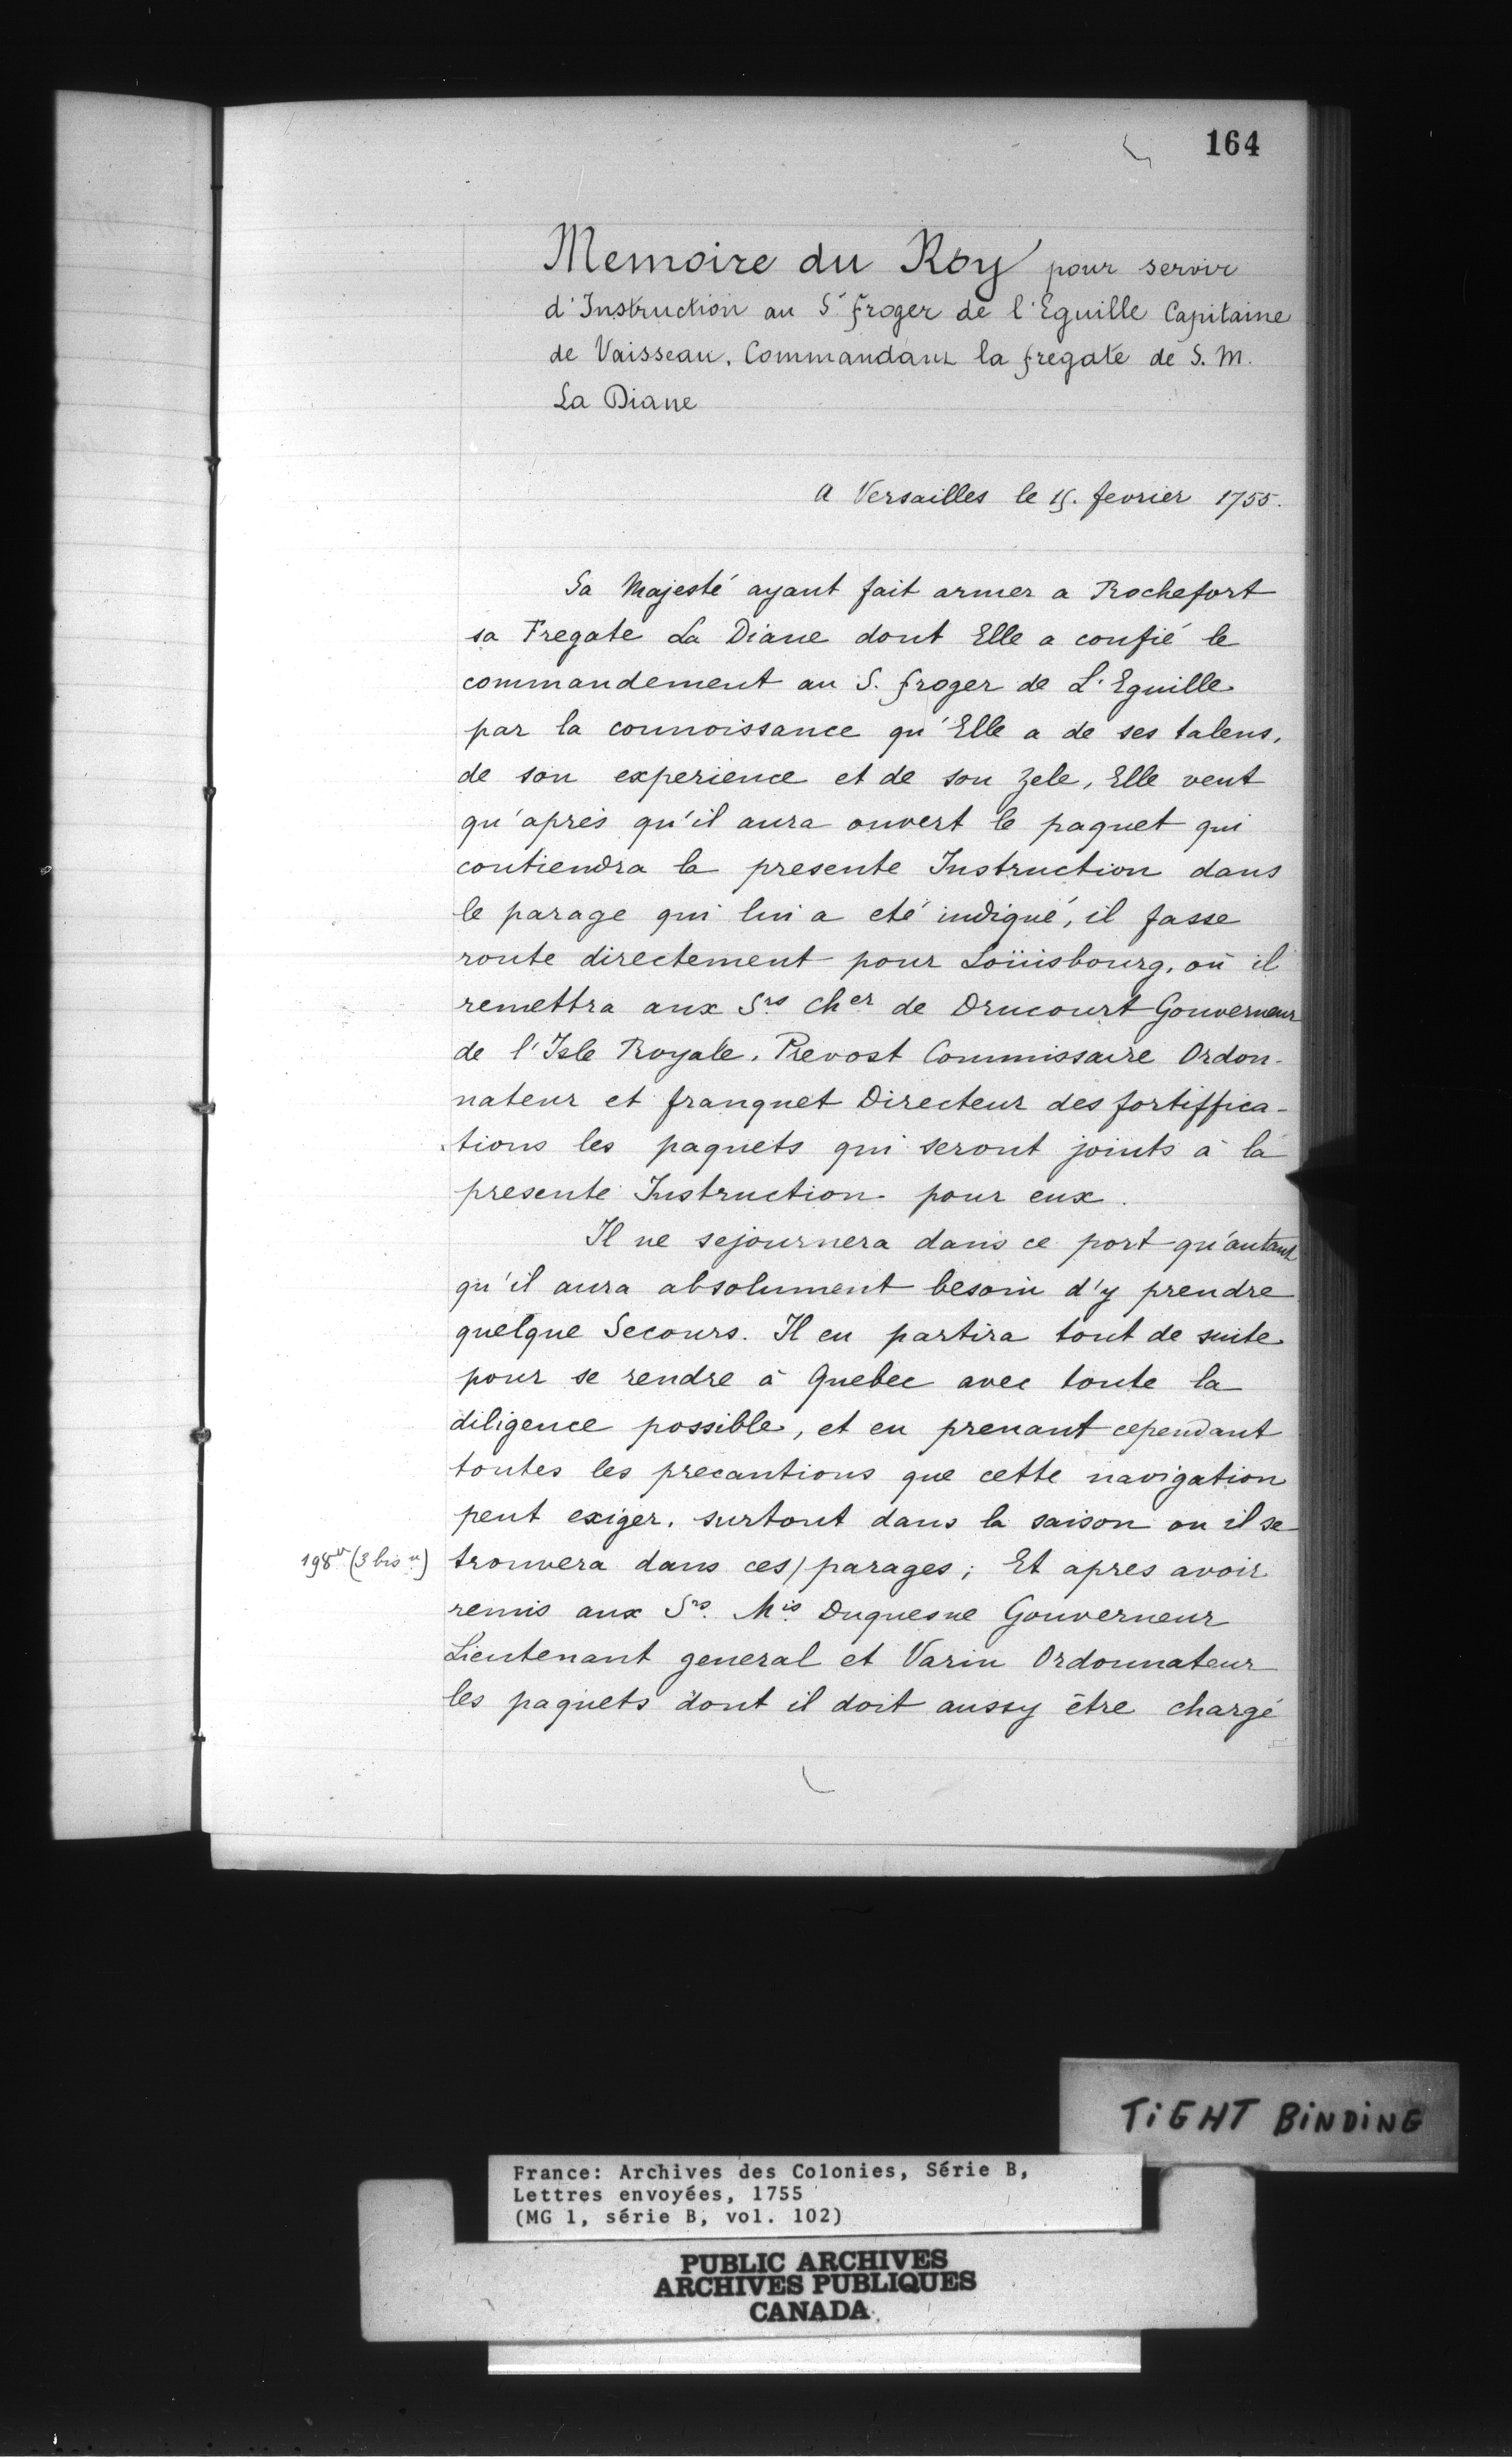 164
Memoire du Roy pour servir
d'Instruction au Sr froger de l'Eguille Capitaine
de Vaisseau, Commandant la fregate de S. M.
La Diane
a Versailles le 15. fevrier 1755.
Sa Majesté ayant fait armer a Rochefort
sa Fregate La Diane dont Elle a confié le
commandement au S. froger de L'Eguille
par la connoissance qu'Elle a de ses talens,
de son experience et de son zele, Elle veut
qu'aprés qu'il aura ouvert le paquet qui
contiendra la presente Instruction dans
le parage qui lui a eté indiqué, il fasse
route directement pour Loüisbourg, où il
remettra aux Srs Cher de Drucourt Gouverneur
de l'Isle Royale, Prevost Commissaire Ordon-
nateur et franquet Directeur des fortiffica-
tions les paquets qui seront joints à la
presente Instruction pour eux.
Il ne sejournera dans ce port qu'autant
qu'il aura absolument besoin d'y prendre
quelque Secours. Il en partira tout de suite
pour se rendre à Quebec avec toute la
diligence possible, et en prenant cependant
toutes les precautions que cette navigation
peut exiger, surtout dans la saison ou il se
198v (3 bis v) trouvera dans ces/parages; Et apres avoir
remis aux Srs. Mis Duquesne Gouverneur
Lieutenant general et Varin Ordonnateur
les paquets dont il doit aussy être chargé
TiGHT BiNDiNG
France: Archives des Colonies, Série B,
Lettres envoyées, 1755
(MG 1, série B, vol. 102)
PUBLIC ARCHIVES
ARCHIVES PUBLIQUES
CANADA